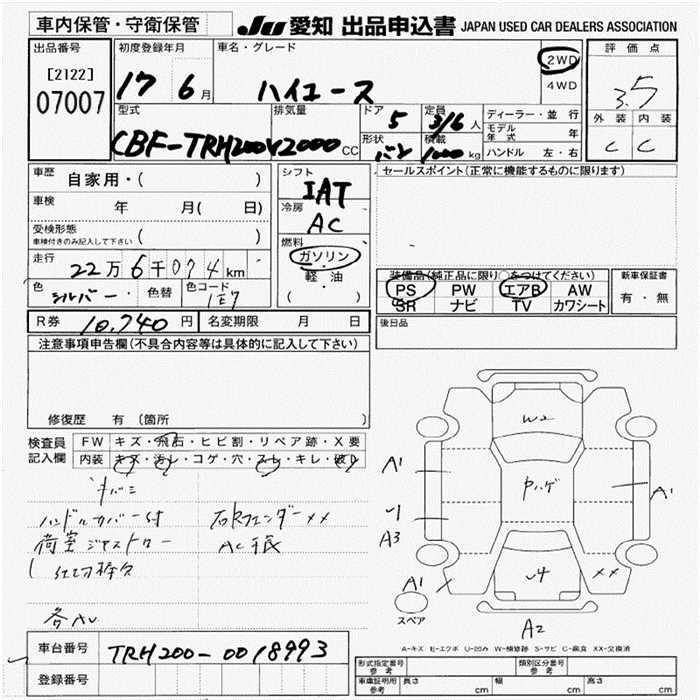 車内保管・守衛保管
JU 愛知 出品申込書 JAPAN USED CAR DEALERS ASSOCIATION
出品番号
[2122]
07007
初度登録年月
17 6月
車名・グレード
ハイエース
2WD
4WD
評価点
3.5
外装 内装
C C
型式
CBF-TRH200V
排気量
2000cc
ドア
5
定員
3/6人
形状
バン
積載
1000kg
ディーラー・並行
モデル年式 年
ハンドル 左・右
車歴 自家用・( )
車検 年 月( 日)
受検形態
車検付きのみ記入して下さい ( )
走行 22万6千074km
色 シルバー 色替 色コード 1E7
R券 10,740円 名変期限 月 日
シフト
IAT
冷房
AC
燃料
ガソリン
軽・油
( )
セールスポイント(正常に機能するものに限ります)
装備品(純正品に限り○をつけてください)
PS PW エアB AW
SR ナビ TV カワシート
新車保証書
有・無
後日品
注意事項申告欄(不具合内容等は具体的に記入して下さい)
修復歴 有(箇所 )
検査員記入欄
FW キズ・飛石・ヒビ割・リペア跡・X要
内装 キズ・汚レ・コゲ・穴・スレ・キレ・破レ
キバミ
ハンドルカバー付 右Rフェンダー XX
AC
各AU
W2
A1
A1
A3
A1
XX
A2
スペア
A-キズ E-エクボ U-凹み W-補修跡 S-サビ C-腐食 XX-交換済
車台番号 TRH200-0018993
登録番号
形式指定番号 参考
類別区分番号 参考
車庫証明用 参考 長さ cm 幅 cm 高さ cm